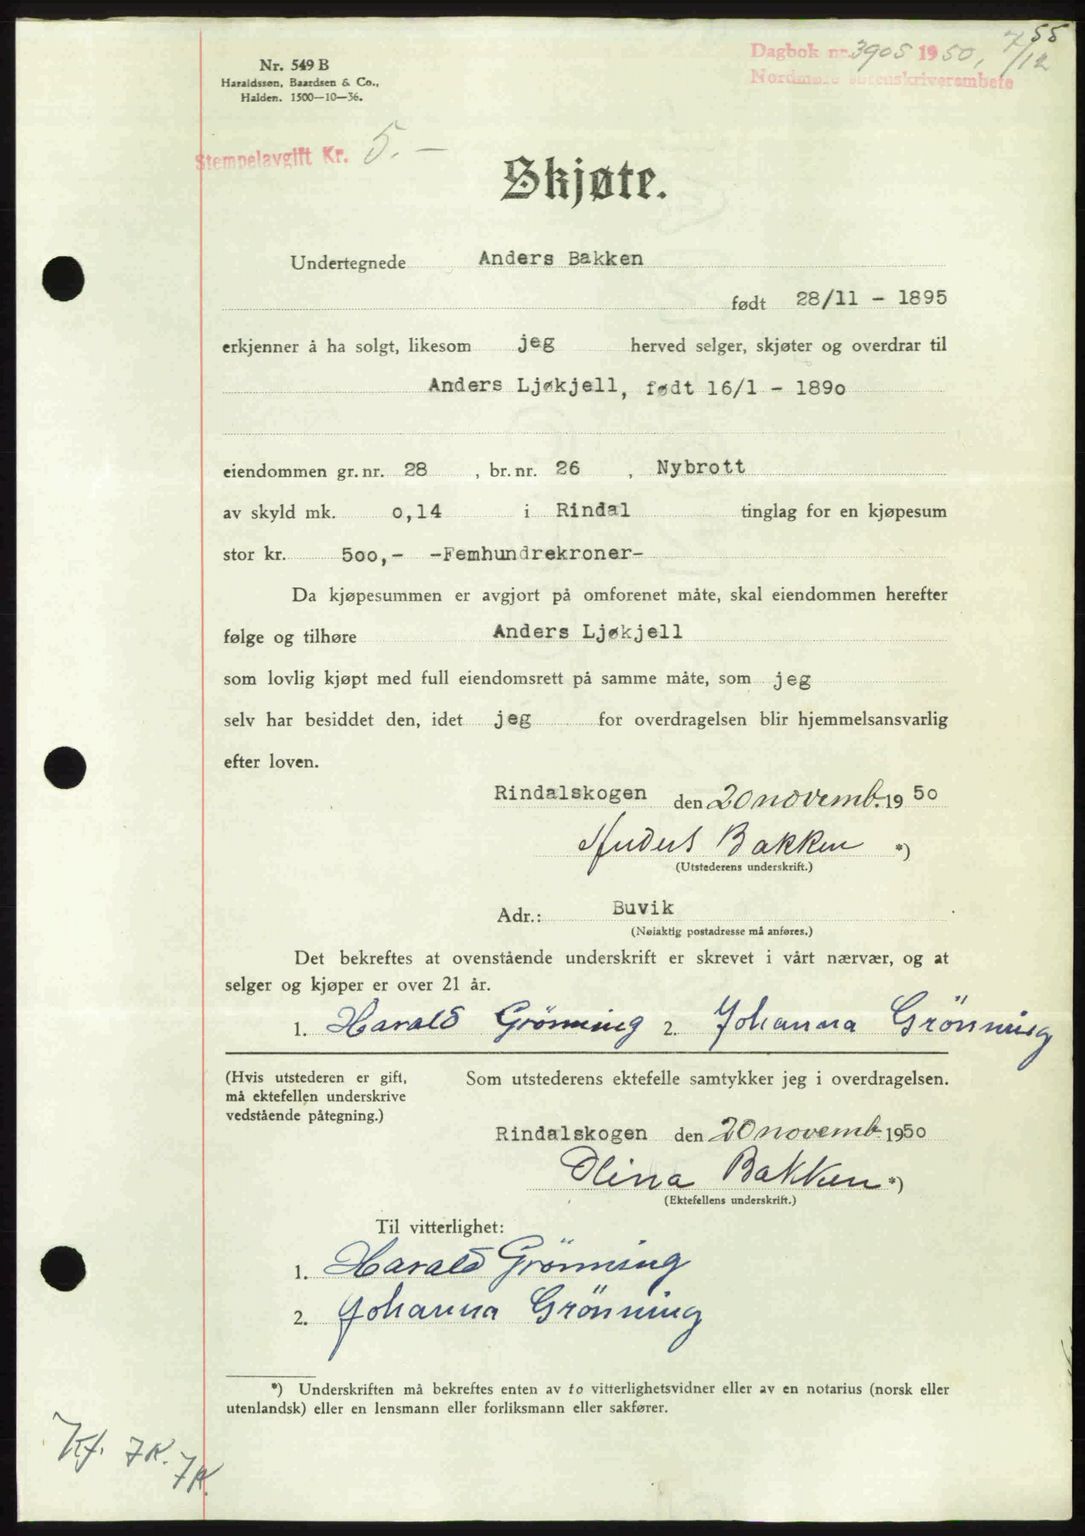 55
Dagbok nr. 3905 1950, 7/12
Nordmøre sorenskriverembete
Nr. 549 B
Haraldssøn, Baardsen & Co.,
Halden. 1500—10—36.
Stempelavgift Kr. 5.—
Skjøte.
Undertegnede Anders Bakken
født 28/11 - 1895
erkjenner å ha solgt, likesom jeg herved selger, skjøter og overdrar til
Anders Ljøkjell, født 16/1 - 1890
eiendommen gr. nr. 28 , br. nr. 26 , Nybrott
av skyld mk. 0,14 i Rindal tinglag for en kjøpesum
stor kr. 500,- -Femhundrekroner-
Da kjøpesummen er avgjort på omforenet måte, skal eiendommen herefter
følge og tilhøre Anders Ljøkjell
som lovlig kjøpt med full eiendomsrett på samme måte, som jeg
selv har besiddet den, idet jeg for overdragelsen blir hjemmelsansvarlig
efter loven.
Rindalskogen den 20 novemb. 19 50
Anders Bakken *)
(Utstederens underskrift.)
Adr.: Buvik
(Nøiaktig postadresse må anføres.)
Det bekreftes at ovenstående underskrift er skrevet i vårt nærvær, og at
selger og kjøper er over 21 år.
1. Harald Grönning 2. Johanna Grönning
(Hvis utstederen er gift, Som utstederens ektefelle samtykker jeg i overdragelsen.
må ektefellen underskrive
vedstående påtegning.)
Rindalskogen den 20 novemb. 1950
Olina Bakken *)
(Ektefellens underskrift.)
Til vitterlighet:
1. Harald Grönning
2. Johanna Grönning
*) Underskriften må bekreftes enten av to vitterlighetsvidner eller av en notarius (norsk eller
utenlandsk) eller en lensmann eller forliksmann eller sakfører.
Kf. 7K. 7K.